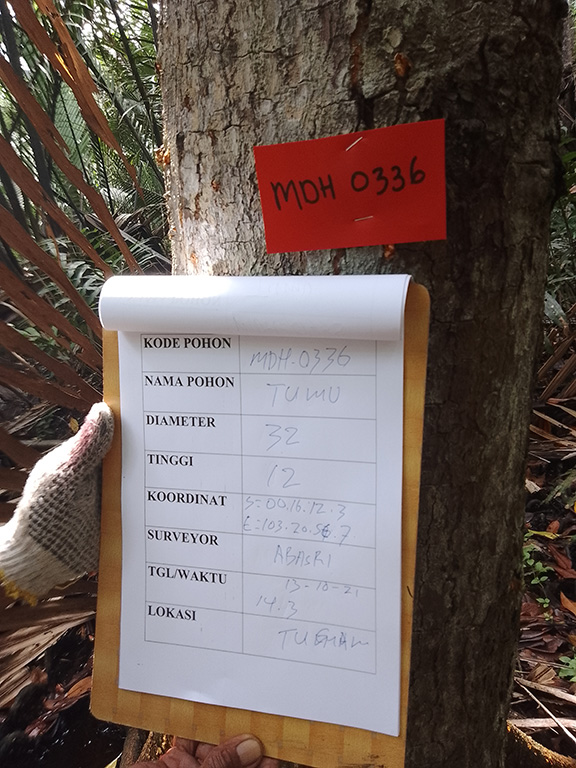 MDH 0336
KODE POHON MDH-0336
NAMA POHON TUMU
DIAMETER 32
TINGGI 12
KOORDINAT S=00.16.12.3
E=103.20.56.7.
SURVEYOR ABASRI
TGL/WAKTU 13-10-21
14.3
LOKASI